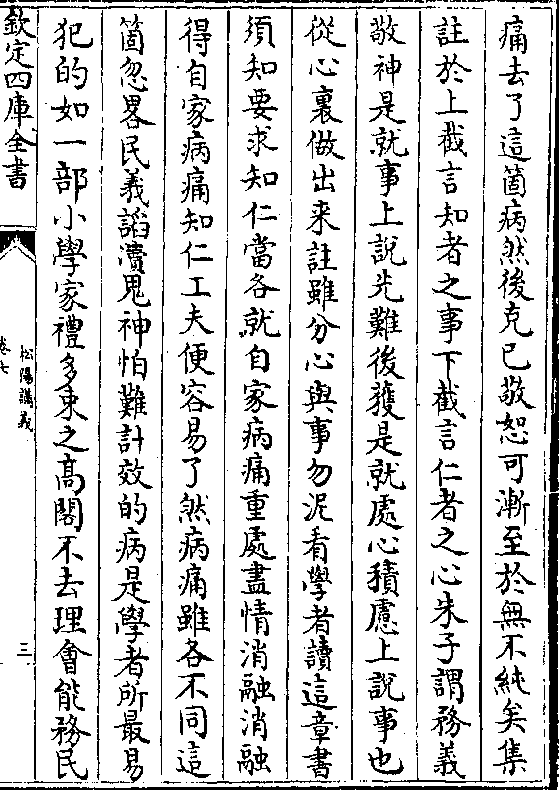 痛去了這箇病然後克已敬恕可漸至於無不純矣集
註於上截言知者之事下截言仁者之心朱子謂務義
敬神是就事上說先難後獲是就處心積慮上說事也
從心裏做出来註雖分心與事勿泥看學者讀這章書
須知要求知仁當各就自家病痛重處盡情消融消融
得自家病痛知仁工夫便容易了然病痛雖各不同這
箇忽畧民義謟瀆鬼神怕難計效的病是學者所最易
犯的如一部小學家禮多束之高閣不去理會能務民
欽定四庫全書
松陽講義
卷七
三